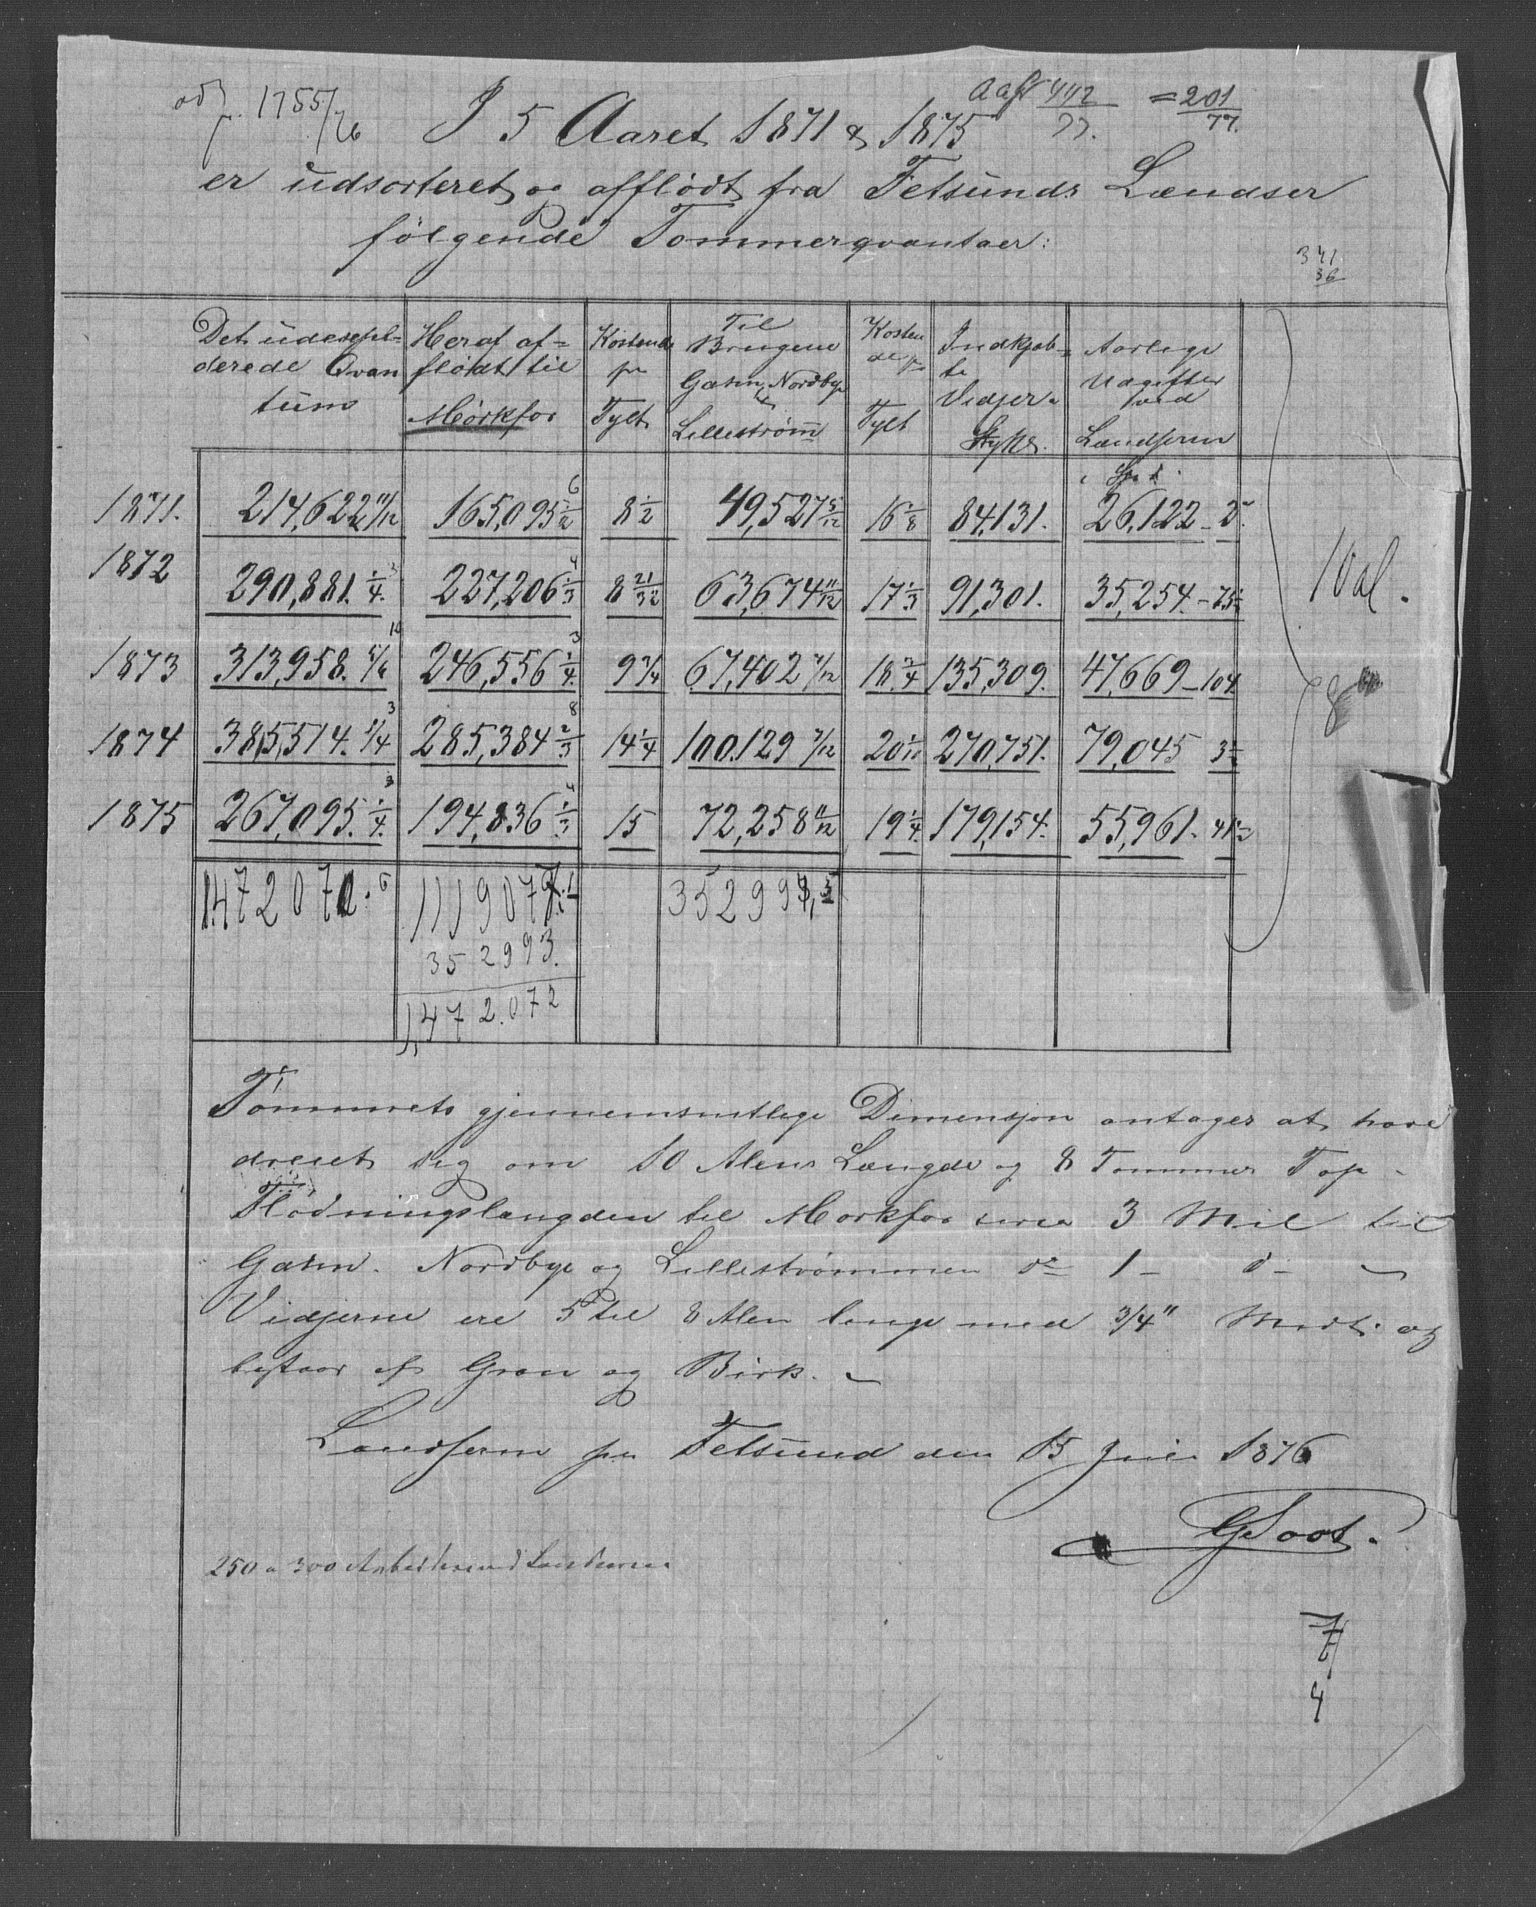 1755/76
Aaft 442/77. = 201/77.
I 5 Aaret 1871 & 1875
er udsorteret og afflödt fra Fetsunds Lændser
følgende Tommerqvantaer:
341
36
Det udexpederede Qvantum | Heraf afflödt til Mörkfos | Kostende pr Tylt | Til Brugene Gæsin, Nordbye & Lilleström | Kostende pr Tylt | Indkjöbte Vidjer Stykr. | Aarlige Udgifter ved Lændserne i Sp d.
1871. | 214,622 11/12 | 165,095 1/2 6 | 8 1/2 | 49,527 5/12 | 16 7/8 | 84,131. | 26,122 - 2
1872 | 290,881. 1/4. 3 | 227,206 1/3 4 | 8 21/32 | 63,674 11/12 | 17 1/3 | 91,301. | 35,254. - 75 1/2
1873 | 313,958. 5/6 10 | 246,556 1/4. 3 | 9 3/4 | 67,402 7/12 | 18 3/4 | 135,309. | 47,669 - 104
1874 | 385,514. 1/4 3 | 285,384 2/3 8 | 14 1/4 | 100.129 7/12 | 20 1/12 | 270,751. | 79,045 3 1/2
1875 | 267,095. 1/4. 3 | 194,836 1/3 4 | 15 | 72,258 11/12 | 19 1/4. | 179,154. | 55,961. 41 1/2
10 al.
8
1.472 072. 6 | 1119 079. 1 | 352 993, 5
352 993.
1,472.072
Tömmrets gjennemsnitlige Dimensjon antages at have
dreiet sig om 10 Alens Længde og 8 Tommer Top -
Flödningslængden til Morkfos circa 3 Mil til
Gæsin. Nordbye og Lilleströmmen do 1 - d -
Vidjerne ere 5 til 8 Alen lange med 3/4" Midt. og
bestaar af Gran og Birk.
Lændserne pr Fetsund den 15 Juli 1876
G Soot.
250 a 300 Arbeidere ved Lændserne
7
4